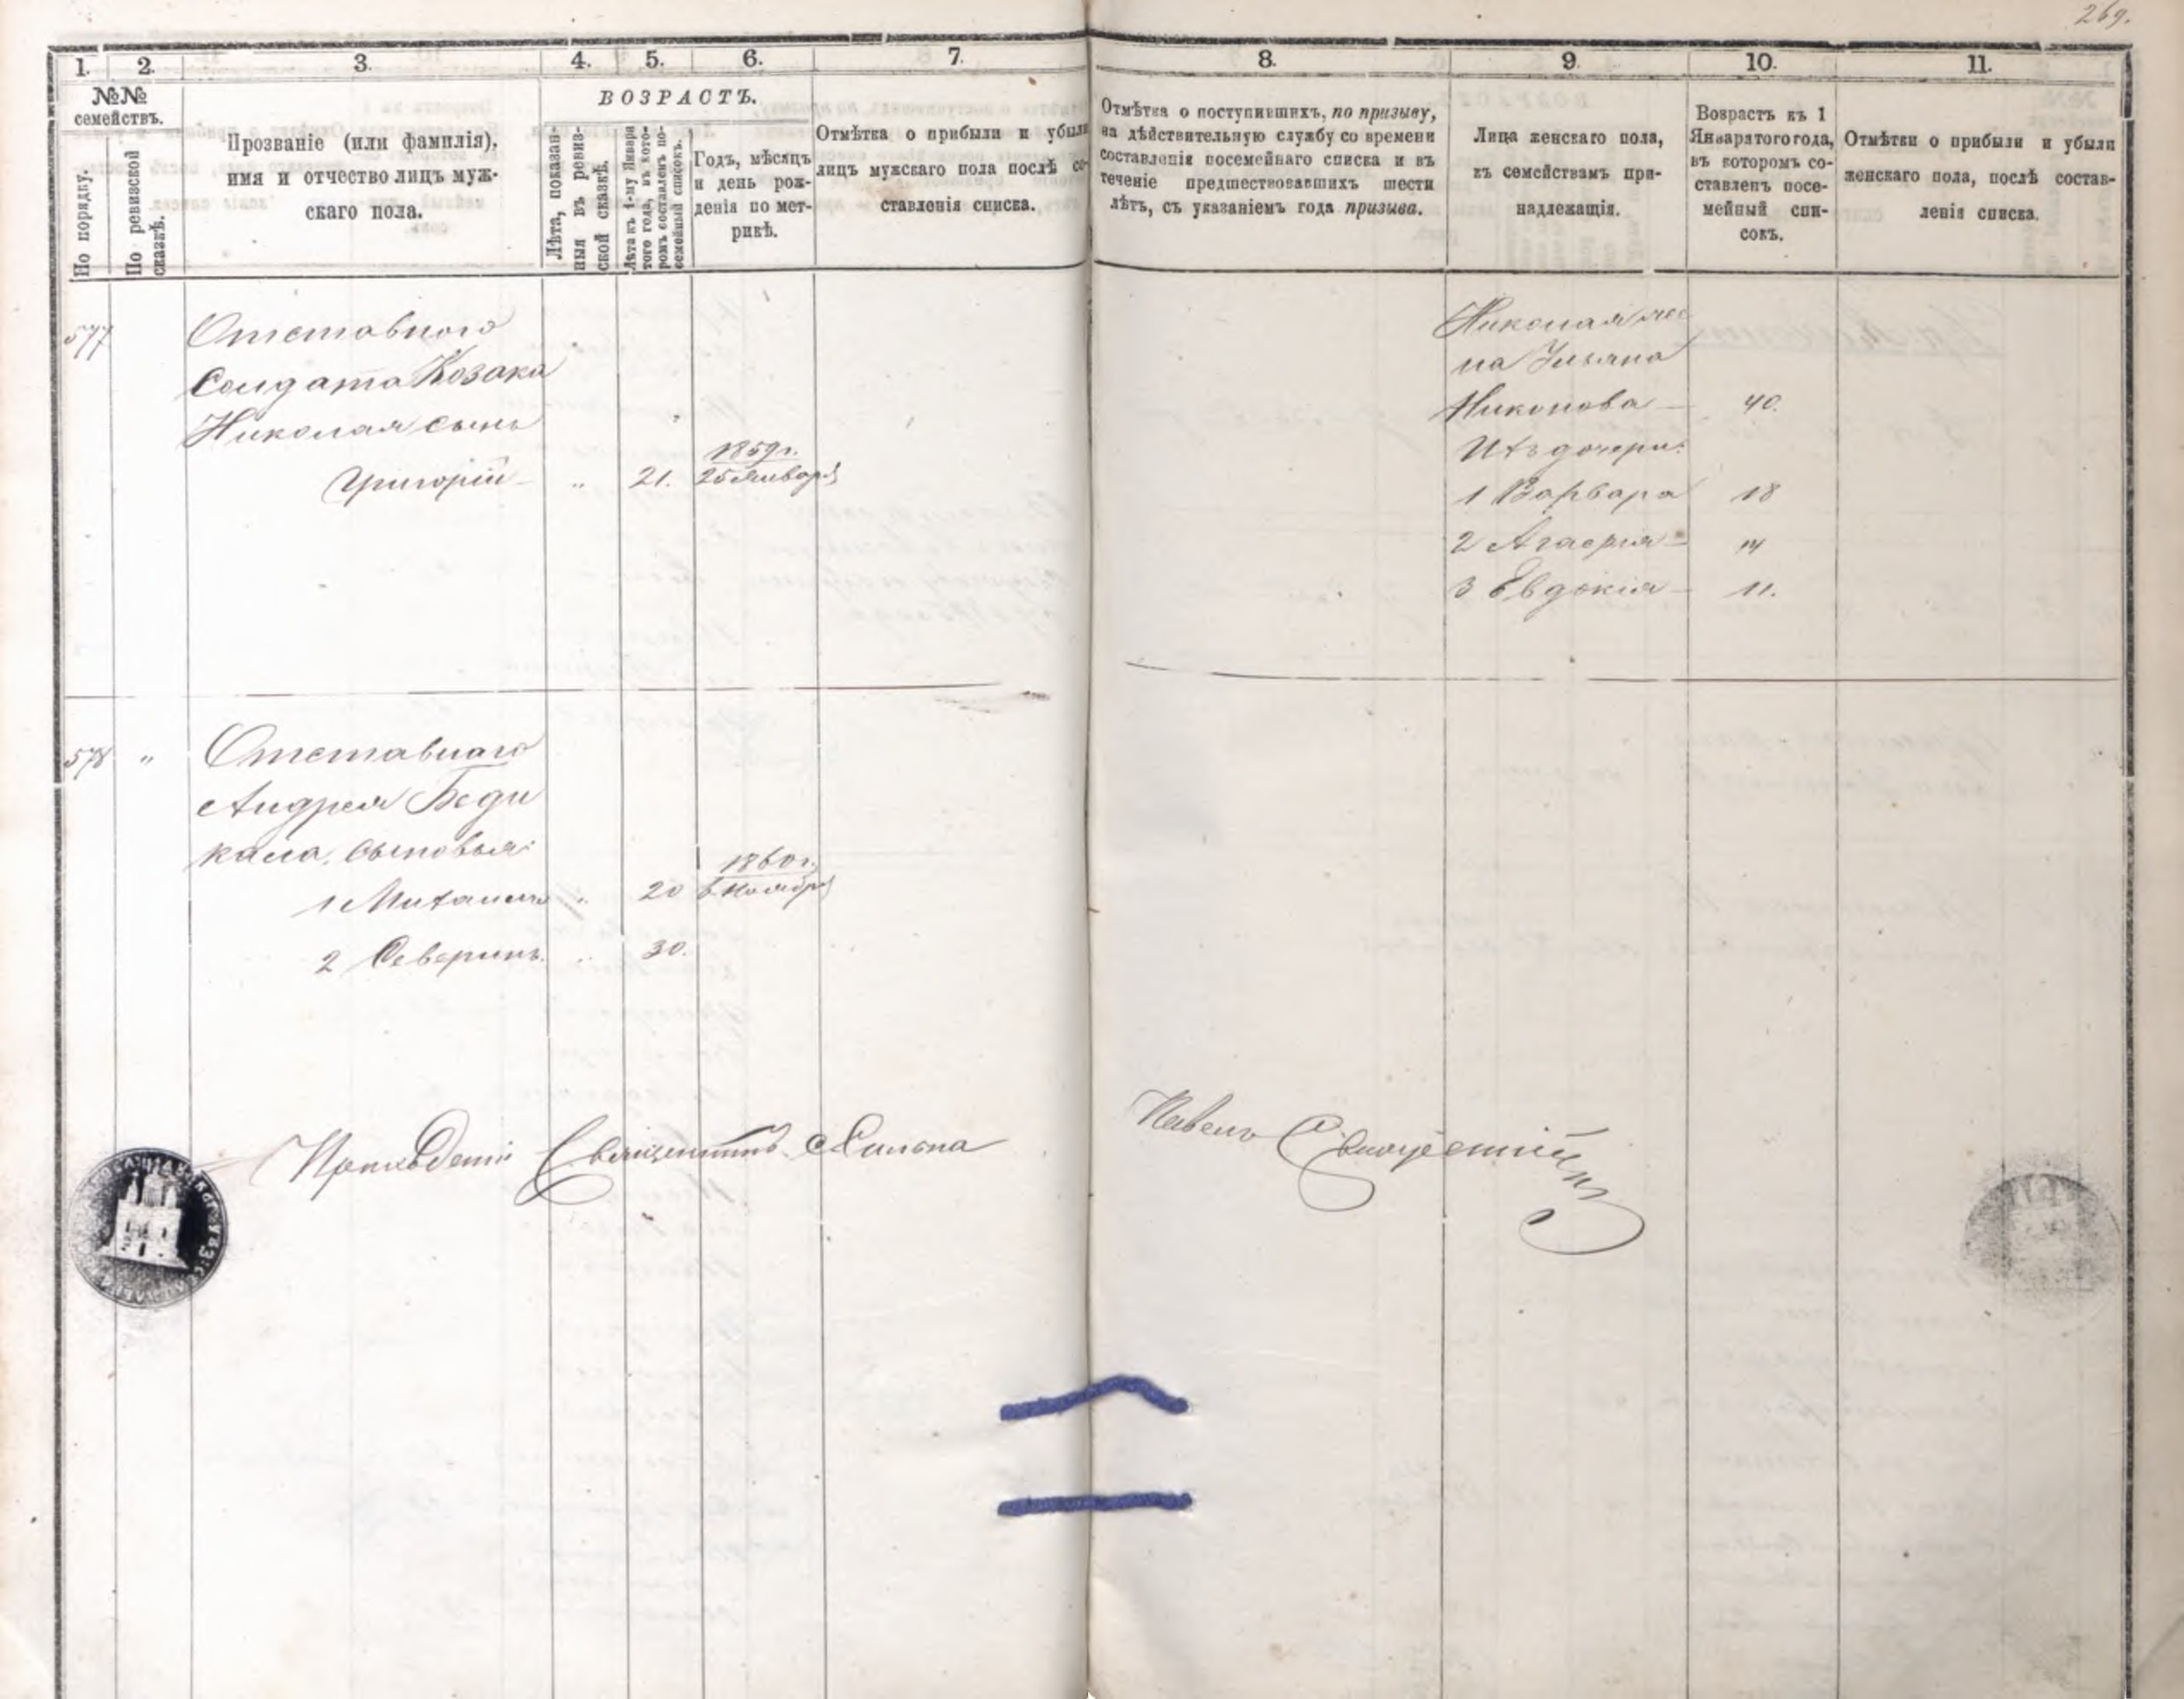 269.
1.
2.
3.
4.
5.
6.
7.
8.
9.
10.
11.
№№ семействъ.
По порядку.
По ревизской сказкѣ.
Прозваніе (или фамилія),
имя и отчество лицъ муж-
скаго пола.
ВОЗРАСТЪ.
Лѣта, показан-
ныя въ ревиз-
ской сказкѣ.
Лѣта къ 1-му Января
того года, въ кото-
ромъ составленъ по-
семейный списокъ.
Годъ, мѣсяцъ
и день рож-
денія по мет-
рикѣ.
Отмѣтка о прибыли и убыли
лицъ мужскаго пола послѣ со-
ставленія списка.
Отмѣтка о поступившихъ, по призыву,
на дѣйствительную службу со времени
составленія посемейнаго списка и въ
теченіе предшествовавшихъ шести
лѣтъ, съ указаніемъ года призыва.
Лица женскаго пола,
къ семействамъ при-
надлежащія.
Возрастъ къ 1
Января того года,
въ которомъ со-
ставленъ посе-
мейный спи-
сокъ.
Отмѣтки о прибыли и убыли
женскаго пола, послѣ состав-
ленія списка.
577
Отставного
Солдата Козака
Николая сынъ
Григорій - " 21. 1859 г.
25 Января
Николая же
на Ульяна
Никонова - 40.
Ихъ дочери:
1 Варвара 18
2 Агафія - 14
3 Евдокія - 11.
578 "
Отставнаго
Андрея Беди
кала, сыновья:
1 Михаилъ " 20 1860 г.
6 Ноября
2 Северинъ. " 30.
Священникъ
Павелъ